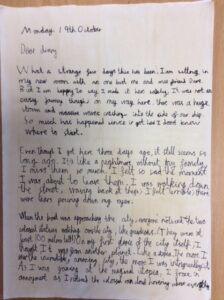 Monday 19th October
Dear diary
What a strange few days this has been. I am sitting in
my new room with no one but me and my friend Dave.
But I am happy to say I made it here safely. It was not an
easy journey though on my way here there was a huge
storm and massive waves crashing into the side of our ship
so much has happened since I got here I don't know
where to start.
Even though I got here three days ago, it still seems so
long ago. It's like a nightmare without my family.
I miss them so much. I felt so sad the moment
I was about to leave them. I was walking down
the street waving back at them. I felt terrible there
were tears pouring down my eyes.
When the boat was approaching the city, everyone noticed the two
statues either side of the city, like guardians. They were at
least 100 metres tall! On my first glance of the city itself, I
thought it was from another planet. Like a alien the more I
saw the incredible, amazing city the more I was
As I was gazing at the magical utopia, I froze in
amazement as I noticed the land hovering above everything